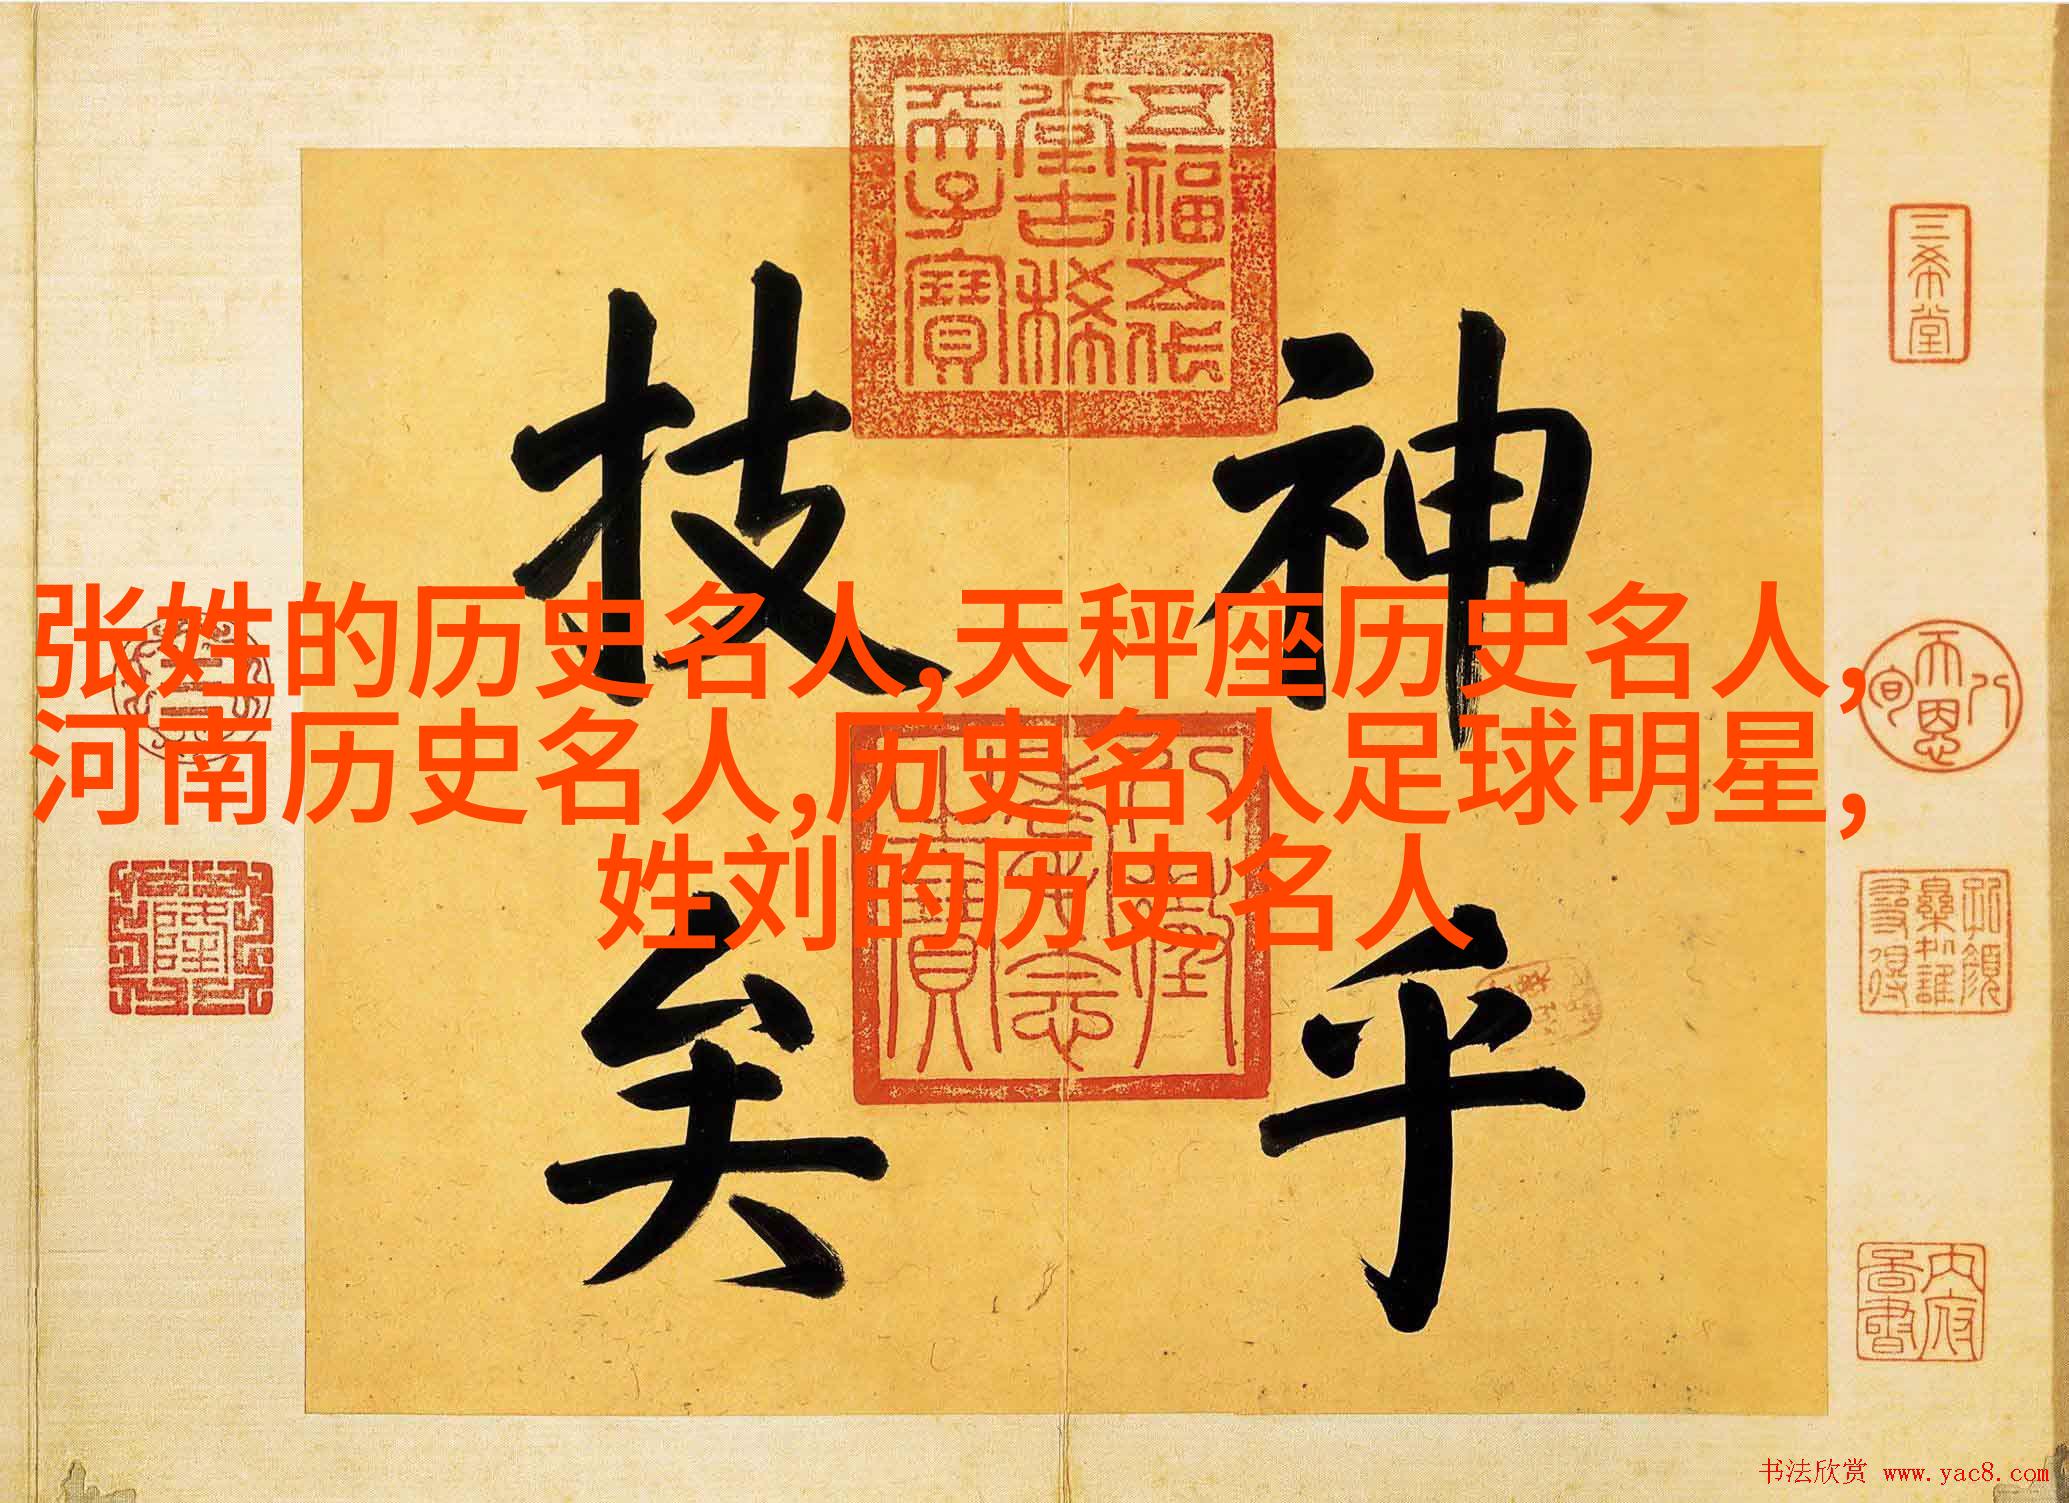 张姓的历史名人,天秤座历史名人,
河南历史名人,历史名人足球明星,
姓刘的历史名人
神乎
技矣
五福五代
堂古稀
天子寶
三希堂
八
天恩
旬
内府
书法欣赏 www.yac8.com